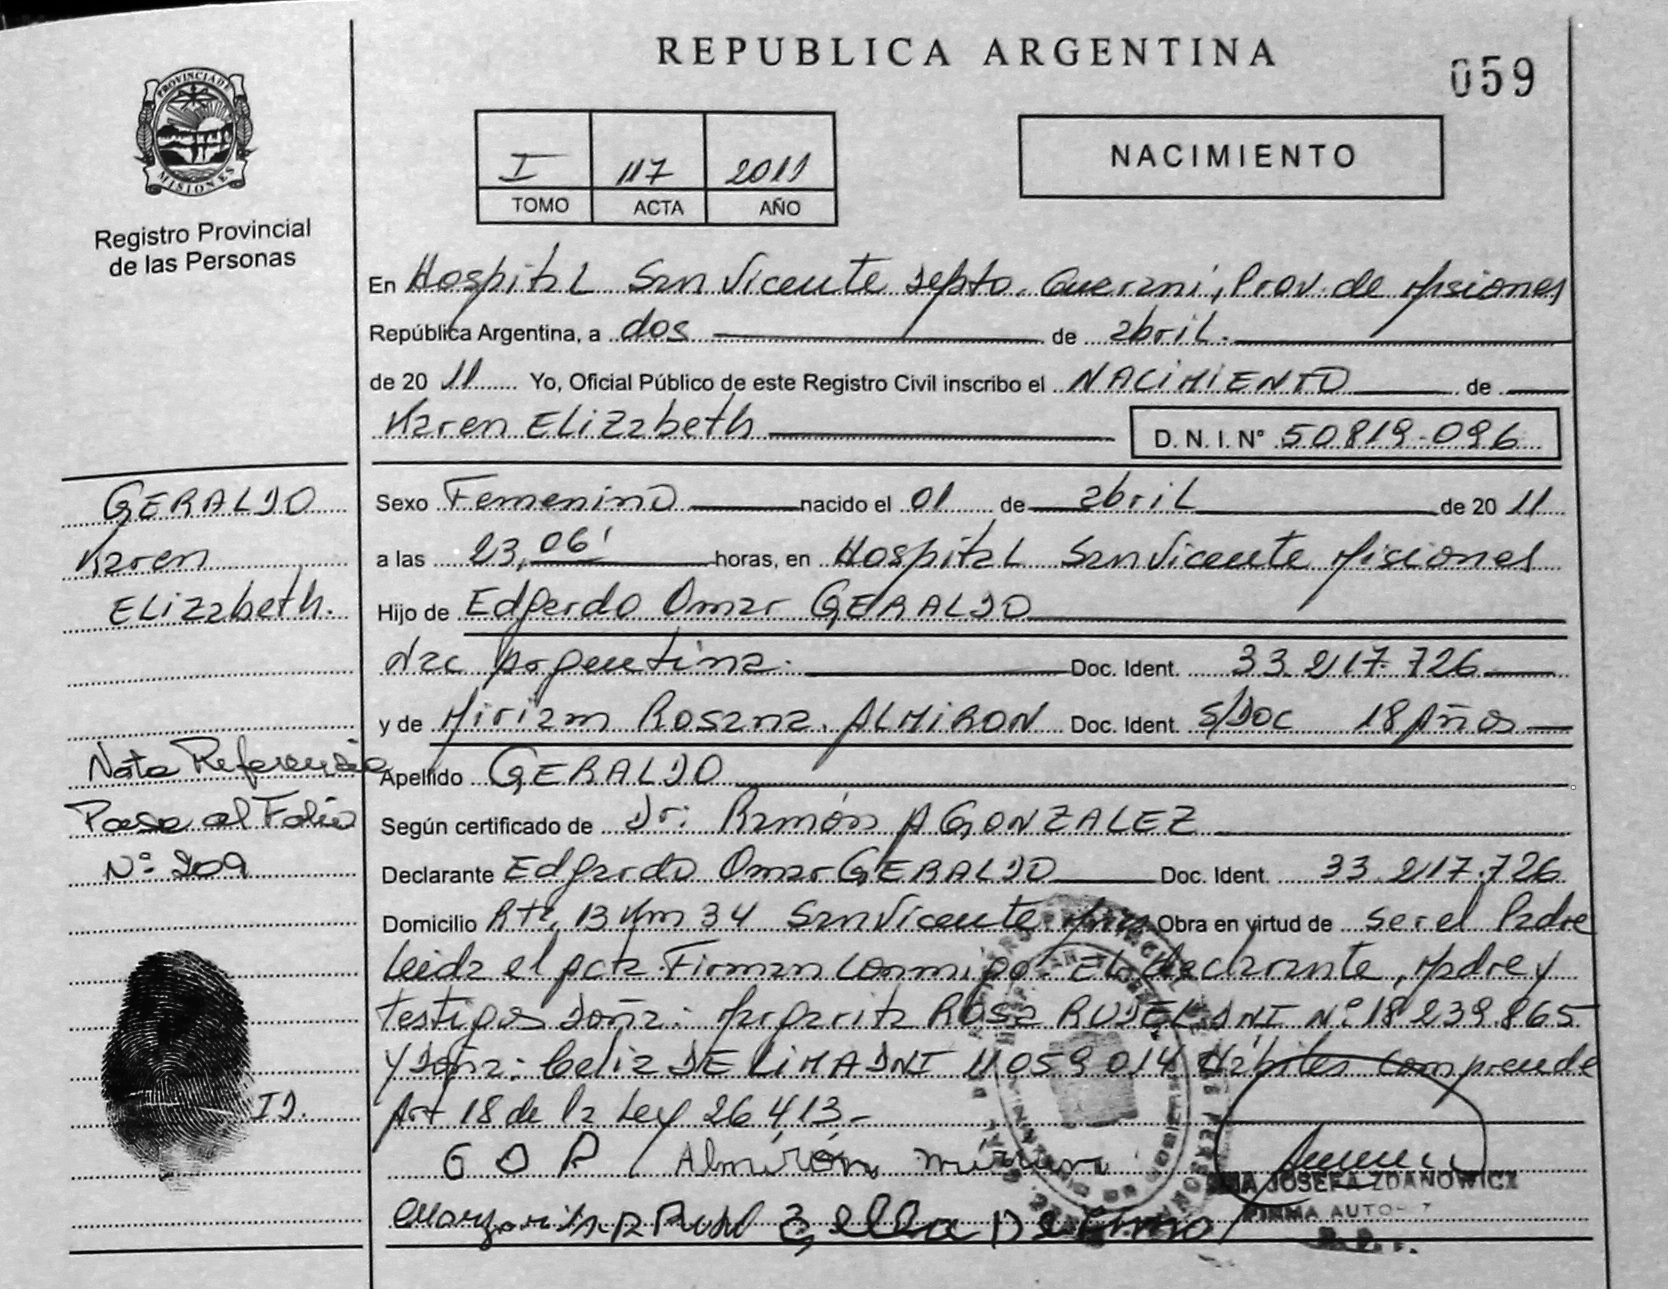 REPUBLICA ARGENTINA
059
PROVINCIA DE
MISIONES
Registro Provincial
de las Personas
I 117 2011
TOMO ACTA AÑO
NACIMIENTO
En Hospital San Vicente Depto. Guarani, Prov. de Misiones
República Argentina, a dos de abril.
de 20 11 Yo, Oficial Público de este Registro Civil inscribo el NACIMIENTO de
Karen Elizabeth D. N. I. Nº 50819.096
GERALDO
Karen
Elizabeth.
Sexo Femenino nacido el 01 de abril de 20 11
a las 23,06' horas, en Hospital San Vicente Misiones
Hijo de Edgardo Omar GERALDO
Nac Argentina. Doc. Ident. 33.217.726
y de Miriam Rosana. ALMIRON Doc. Ident. S/Doc 18 Años
Nota Referencia
Pasa al Folio
Nº 209
Apellido GERALDO
Según certificado de Dr: Ramón A GONZALEZ
Declarante Edgardo Omar GERALDO Doc. Ident. 33.217.726
Domicilio Rta, 13 Km 34 San Vicente Mnes Obra en virtud de ser el Padre
Leida el acta Firman conmigo: El declarante, Madre y
testigos Doña: Margarita Rosa RUDEL DNI Nº 18 239.865
Y Doña: Celia DE LIMA DNI 11 059 014 Hábiles comprende
Art 18 de la Ley 26 413-
I D.
G O R / Almirón miriam
Margarita R Rudel Celia De Lima
JOSEFA ZDANOWICZ
FIRMA